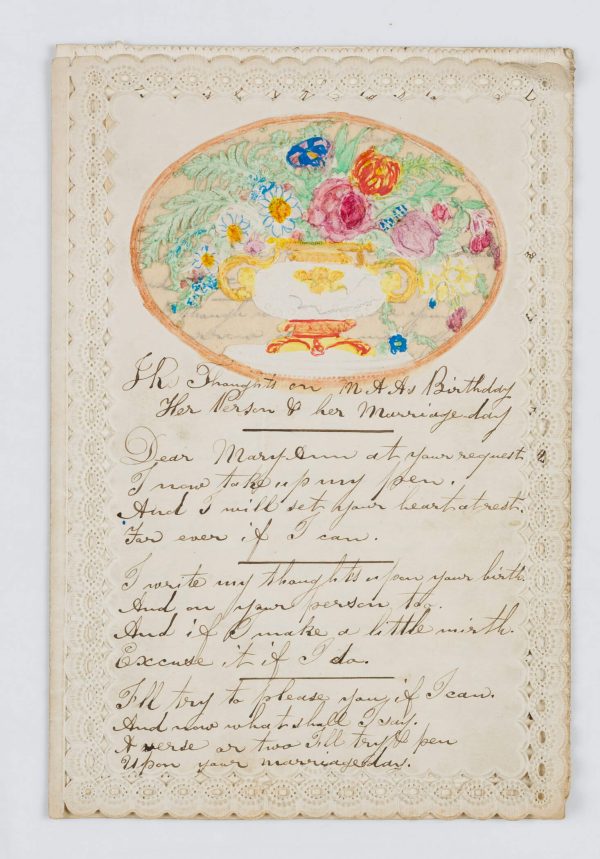 Thoughts on M A A's Birthday
Her Person & her Marriage day
Dear Mary Ann at your request
I now take up my pen.
And I will set your heart at rest.
For ever if I can.
I write my thoughts upon your birth.
And on your person, too.
And if I make a little mirth.
Excuse it if I do.
I'll try to please you if I can.
And now what shall I say.
A verse or two I'll try & pen
Upon your marriage day.